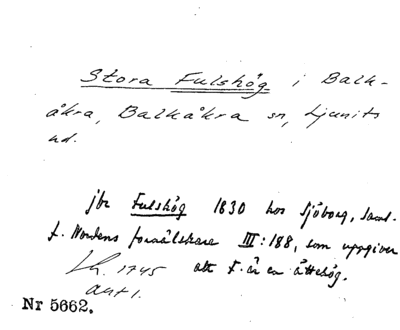 Stora Fulshög i Balk-
åkra, Balkåkra sn, Ljunits
hd.
jfr Fulshög 1830 hos Sjöborg, Saml.
f. Nordens fornälskare III:188, som uppgiver
att F. är en ättehög.
Lh. 1745
ant 1.
Nr 5662.